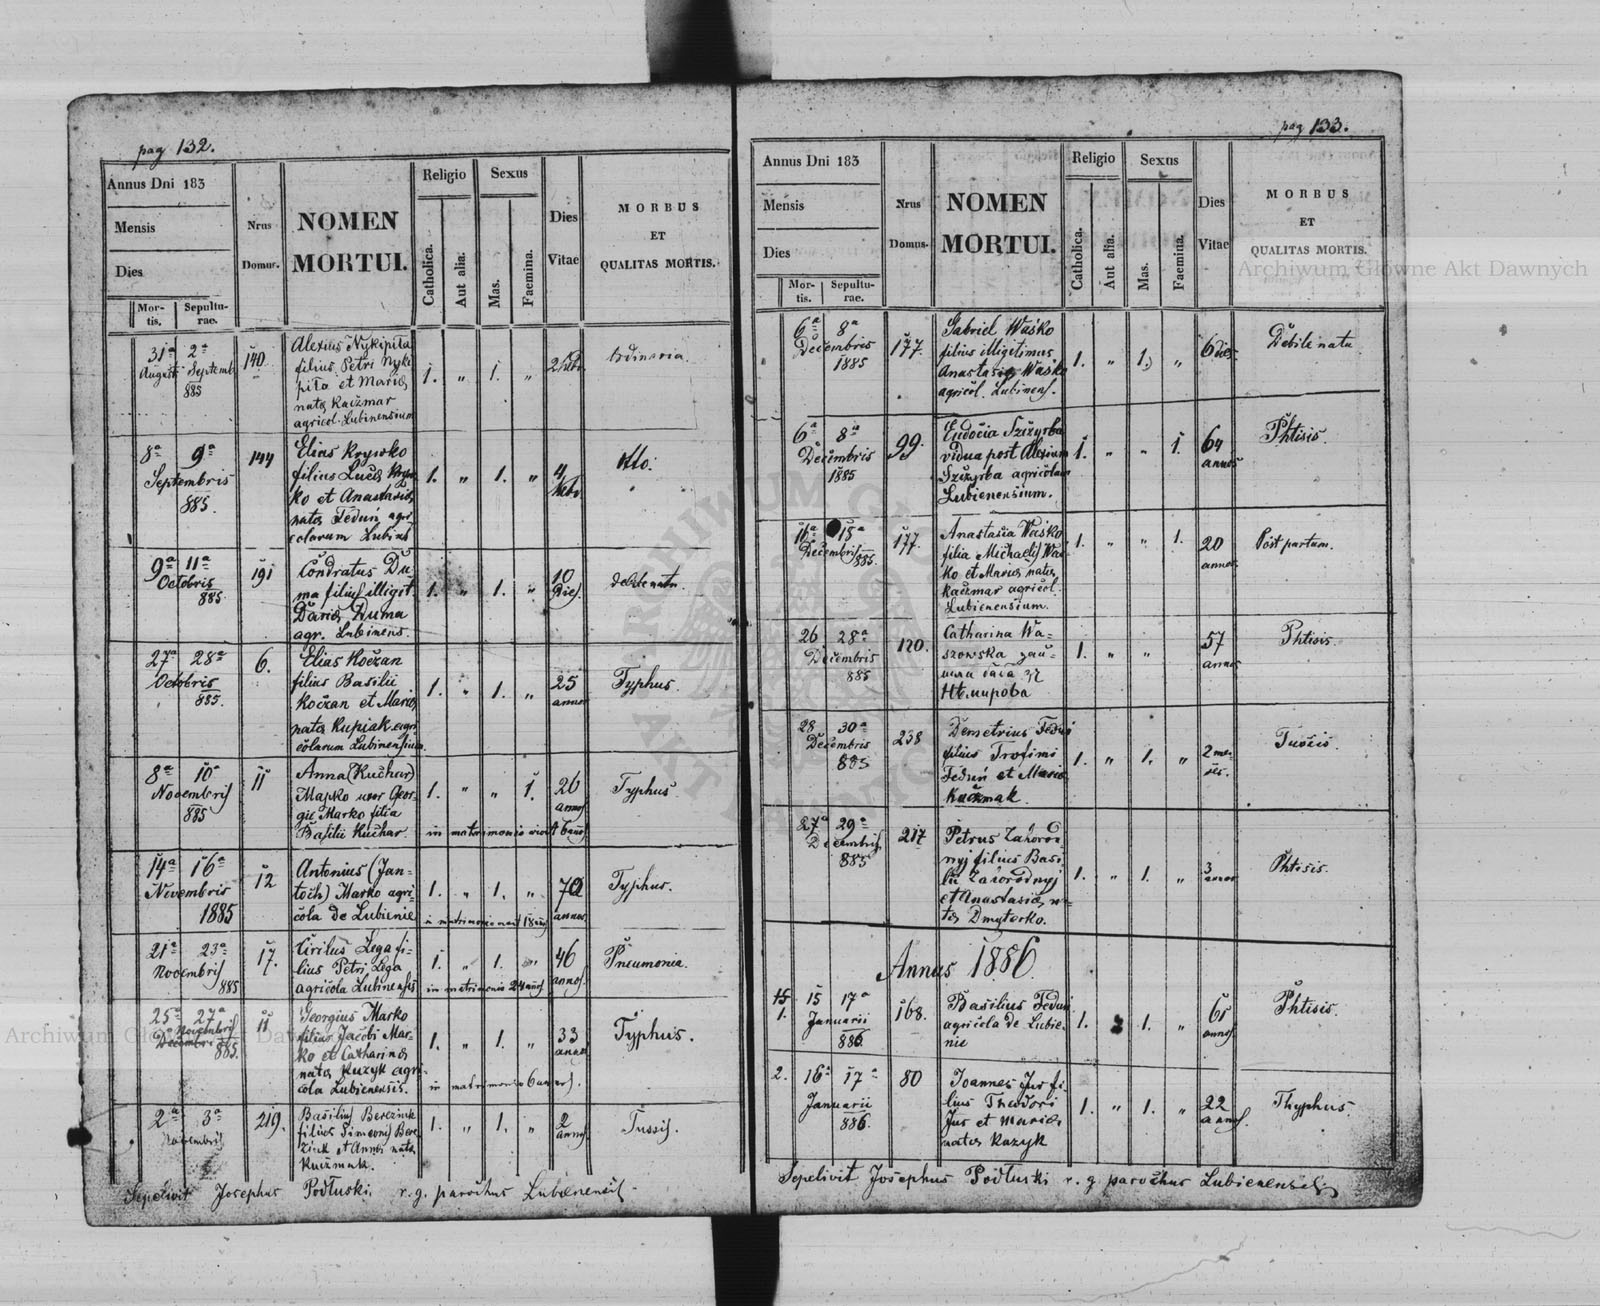 pag 132.
Annus Dni 183
Mensis
Dies
Mor-
tis.
Sepultu-
rae.
Nrus
Domus.
NOMEN
MORTUI.
Religio
Catholica.
Aut alia.
Sexus
Mas.
Faemina.
Dies
Vitae
MORBUS
ET
QUALITAS MORTIS.
31a 2a
Augusti Septemb
885
140.
Alexius Nykipiła
filius Petri Nyki
piła et Maria
nata Kaczmar
agricol. Lubinensium
1. " 1. "
Ordinaria.
8a 9a
Septembris
885.
144
Elias Krysko
filius Luca Krys
ko et Anastasia
nata Feduń agri
colarum Lubien
1. " 1. "
4
9a 11a
Octobris
885
191
Condratus Du
ma filius illigit.
Daria Duma
agr. Lubinens.
1. " 1. "
10
Dies.
debile natu
27a 28a
Octobris
885.
6.
Elias Koczan
filius Basilii
Koczan et Maria
nata Kupiak agri
colarum Lubinensium
1. " 1. "
25
annor
Typhus.
8a 10a
Novembris
885
11
Anna (Kuchar)
Marko uxor Geor-
gii Marko filia
Basilii Kuchar
1. " " 1.
26
annos
Typhus.
in matrimonio vixit 6 annos
14a 16a
Novembris
1885
12
Antonius (Jan-
toch) Marko agri-
cola de Lubienie
1. " 1. "
70
annos.
Typhus.
21a 23a
Novembris
885
17.
Cirilus Lega fi-
lius Petri Lega
agricola Lubinensis
1. " 1. "
46
annos
Pneumonia.
in matrimonio 24 annos
25a 27a
Novembris
885.
11
Georgius Marko
filius Jacobi Mar-
ko et Catharina
nata Kuzyk agri-
cola Lubienensis.
1. " 1. "
33
annos
Typhus.
in matrimonio 6 annos.
2a 3a
Novembris
219.
Basilius Berezink
filius Simeonis Bere
zink et Anna nata
Kuczmak.
1. " 1. "
2
annos.
Tussis.
Sepelivit Josephus Podłuski r. g. parochus Lubienensis
pag 133.
Annus Dni 183
Mensis
Dies
Mor-
tis.
Sepultu-
rae.
Nrus
Domus.
NOMEN
MORTUI.
Religio
Catholica.
Aut alia.
Sexus
Mas.
Faemina.
Dies
Vitae
MORBUS
ET
QUALITAS MORTIS.
6a 8a
Decembris
1885
177.
Gabriel Waśko
filius illigitimus
Anastasia Waśko
agricol. Lubinens.
1. " 1. "
6 dies
Debile natu
6a 8a
Decembris
1885
99.
Eudocia Szczyrba
vidua post Alexium
Szczyrba agricolam
Lubienensium.
1. " " 1.
64
annos
Phtisis.
15a
Decembris
885.
177.
Anastasia Waśko
filia Michaelis Waś
ko et Maria nata
Kaczmar agricol.
Lubienensium.
1. " " 1.
20
annos
Post partum.
26 28a
Decembris
885
120.
Catharina Wa-
szowska
1. " "
57
annos
Phtisis.
28 30a
Decembris
885
238
Demetrius Feduń
filius Trofimi
Feduń et Maria
Kuczmak.
1. " 1. "
2 men-
ses.
Tussis.
27a 29a
Decembris
885
217
Petrus Zahorod
nyj filius Basi-
lii Zahorodnyj
et Anastasia na-
ta Dmyterko.
1. " 1. "
3
annos
Phtisis.
Annus 1886
1.
15 17a
Januarii
886
168.
Basilius Feduń
agricola de Lubie-
nie
1. 1. "
61
annos.
Phtisis.
2.
16a 17a
Januarii
886.
80
Joannes Jus fi-
lius Theodori
Jus et Maria
nata Kuzyk
1. " 1. "
22
annos.
Thyphus.
Sepelivit Josephus Podłuski r. g parochus Lubienensis
Archiwum Główne Akt Dawnych
Archiwum Główne Akt Dawnych
ARCHIWUM GŁÓWNE AKT DAWNYCH